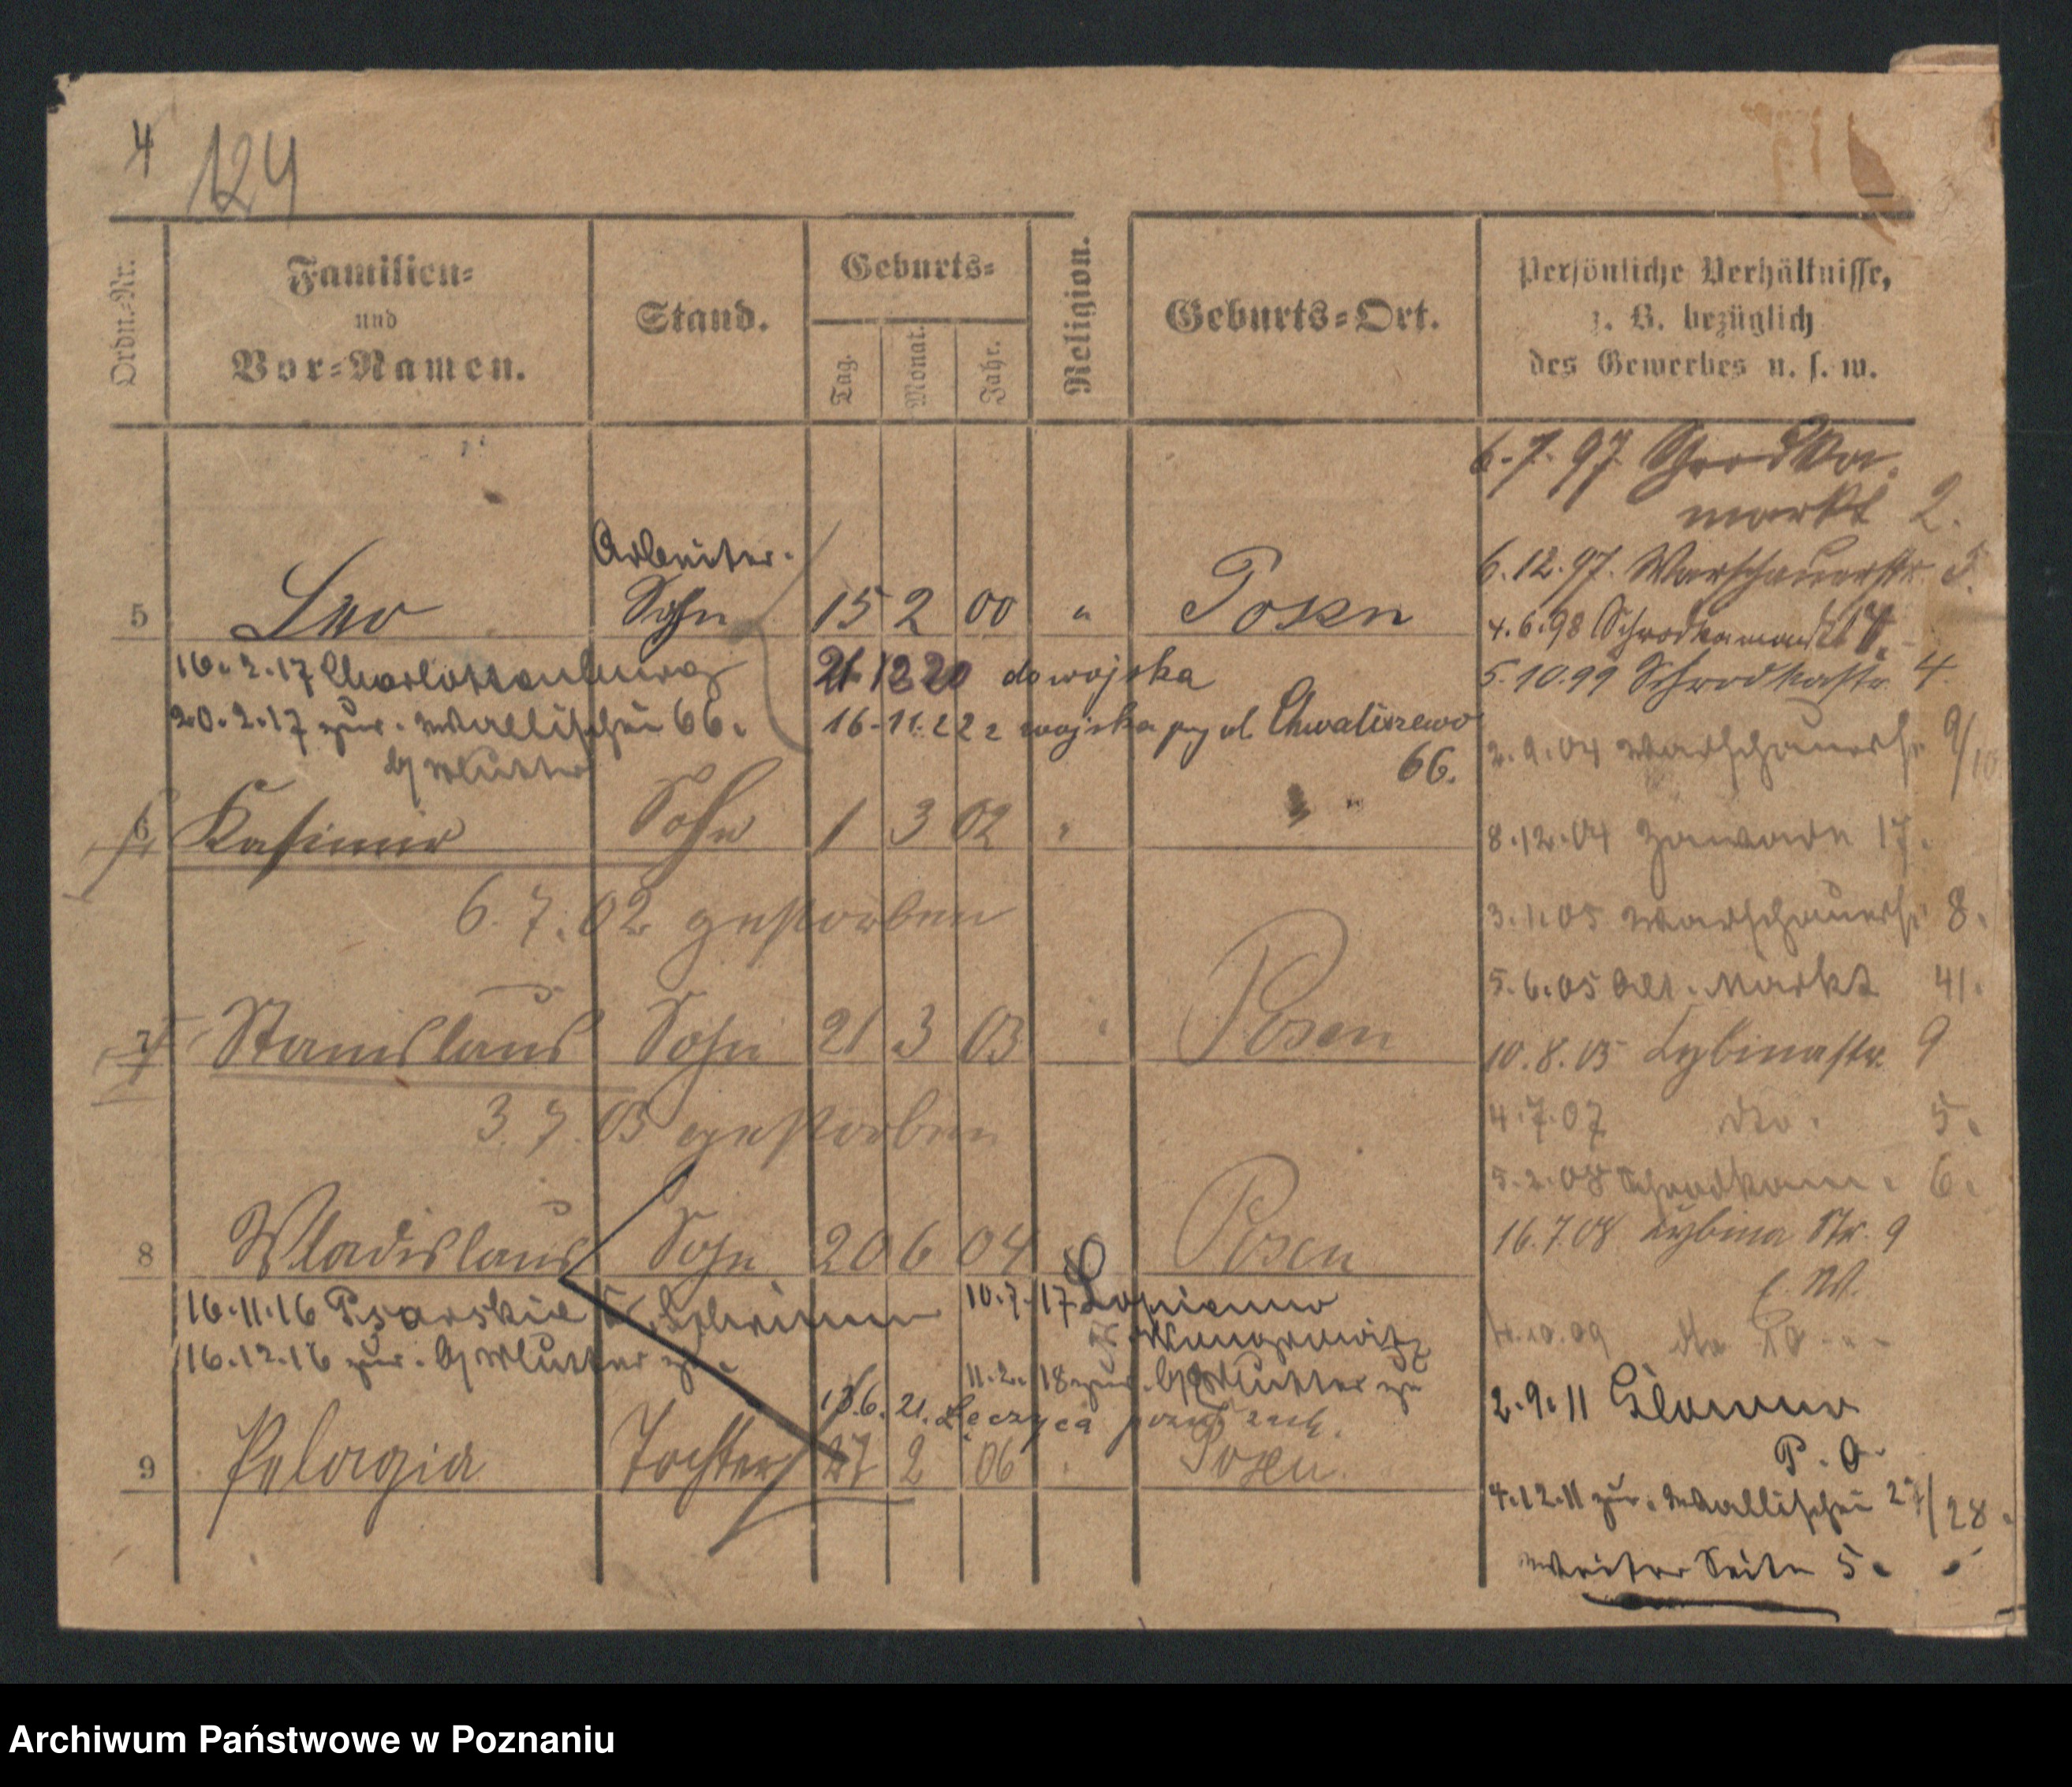 4
124
Ordn.-Nr.
Familien-
und
Vor-Namen.
Stand.
Geburts-
Tag.
Monat.
Jahr.
Religion.
Geburts-Ort.
Persönliche Verhältnisse,
z. B. bezüglich
des Gewerbes u. s. w.
6.7.97. Schrodka
markt 2.
6.12.97. Warschauerstr. 3.
4.6.98 Schrodkamarkt
5.10.99 Schrodkastr. 4.
2.9.04 Warschauerstr. 9/10
8.12.04 Zawade 17.
3.1.05 Warschauerstr. 8.
5.6.05 Alt. Markt 41.
10.8.05 Cybinastr. 9
4.7.07 dto. 5.
5.2.08 Schrodkam. 6.
16.7.08 Cybina Str. 9
10.09 dto 10
2.9.11 Glowno
P. O.
4.12.11 zur. Wallischei 27/28.
Weiter Seite 5.
Arbeiter.
5 Leo Sohn 15 2 00 " Posen
16.2.17 Charlottenburg
20.2.17 zur. Wallischei 66.
b/ Mutter
21.12.20 do wojska
16.11.22 z wojska przy ul. Chwaliszewo
66.
6 Kasimir Sohn 1 3 02 " "
6.7.02 gestorben
7 Stanislaus Sohn 21 3 03 " Posen
3.7.03 gestorben
8 Wladislaus Sohn 20 6 04 Posen
16.11.16 Psarskie Kr. Schrimm
16.12.16 zur. b/ Mutter zu.
10.7.17 Lopienno
Kr. Wongrowitz
11.2.18 zur. b/ Mutter zu
13.6.21. Łęczyca
9 Pelagia Tochter 27 2 06 Posen
Archiwum Państwowe w Poznaniu